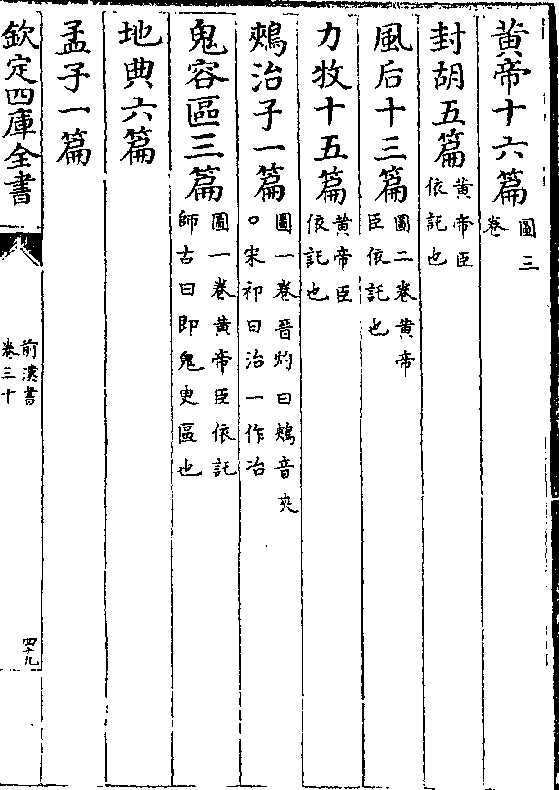 黄帝十六篇圖三卷
封胡五篇黄帝臣依託也
風后十三篇圖二卷黄帝臣依託也
力牧十五篇黄帝臣依託也
鵊冶子一篇圖一卷晉灼曰鵊音夾○宋祁曰治一作冶
鬼容區三篇圖一卷黄帝臣依託師古曰即鬼臾區也
地典六篇
孟子一篇
欽定四庫全書
前漢書卷三十
四十九